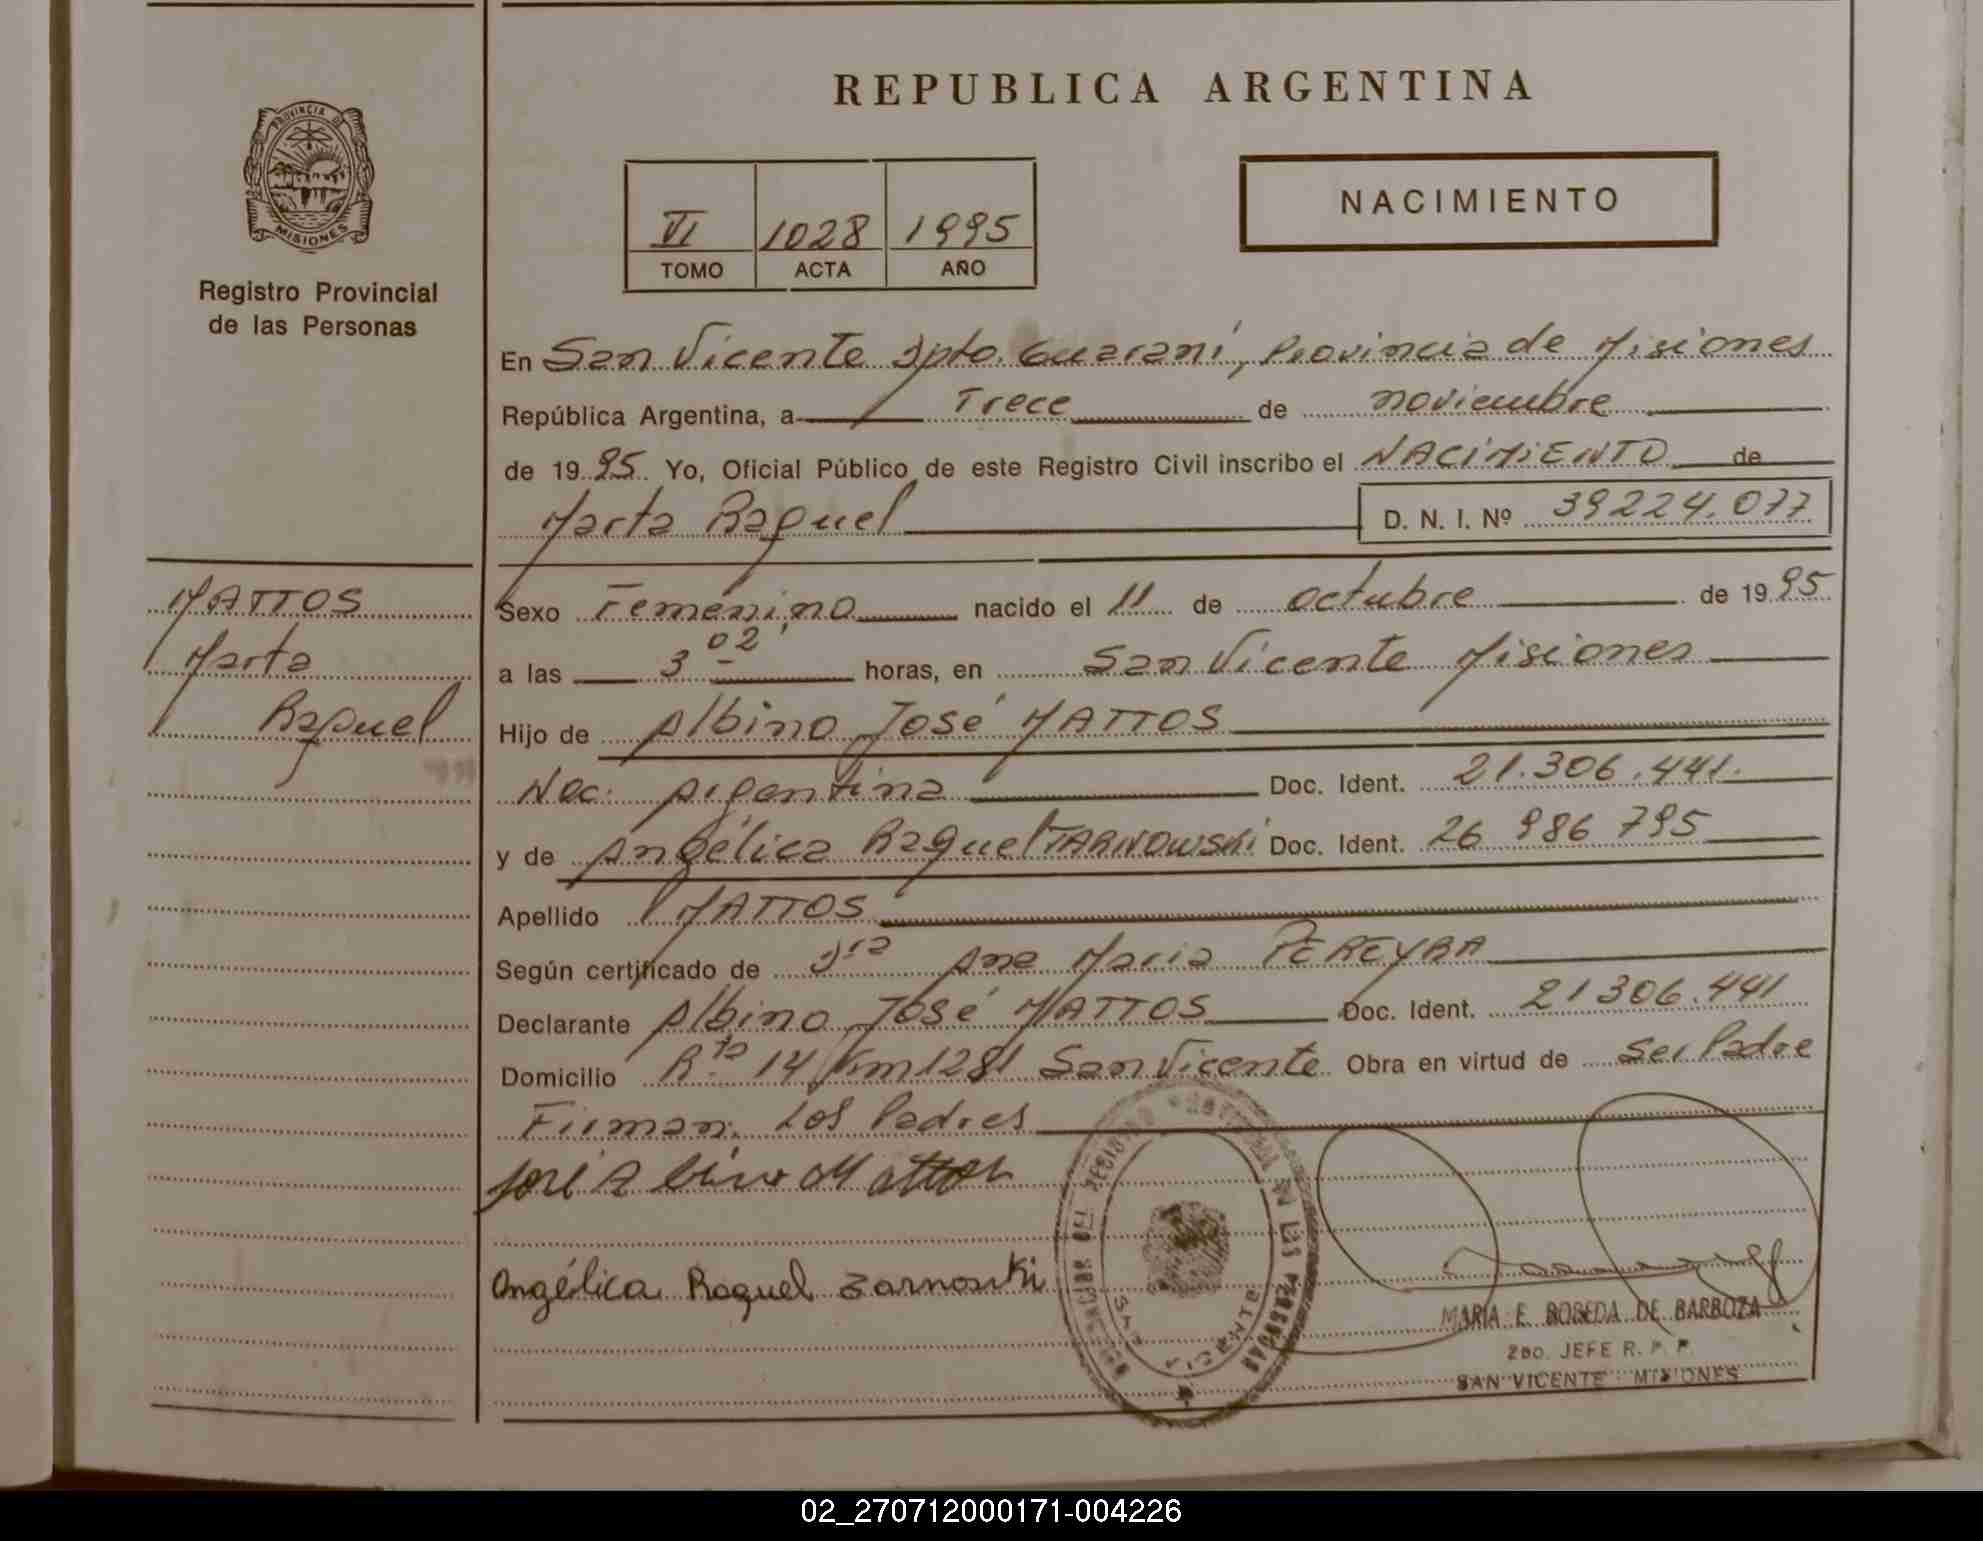 REPUBLICA ARGENTINA
PROVINCIA DE
MISIONES
Registro Provincial
de las Personas
VI 1028 1995
TOMO ACTA AÑO
NACIMIENTO
En San Vicente Dpto. Guaraní, Provincia de Misiones
República Argentina, a Trece de noviembre
de 1995 Yo, Oficial Público de este Registro Civil inscribo el NACIMIENTO de
Marta Raquel D. N. I. Nº 39224.077
MATTOS
Marta
Raquel
Sexo Femenino nacido el 11 de octubre de 1995
a las 3 02 horas, en San Vicente Misiones
Hijo de Albino José MATTOS
Nac. Argentina Doc. Ident. 21.306.441.
y de Angélica Raquel TARNOWSKI Doc. Ident. 26 986 795
Apellido MATTOS
Según certificado de Dra Ana Maria PEREYRA
Declarante Albino José MATTOS Doc. Ident. 21306.441
Domicilio Rta 14 Km 1281 San Vicente Obra en virtud de Ser Padre
Firman. Los Padres
José Albino Mattos
Angélica Raquel Zarnouski
DEL REGISTRO PROVINCIAL DE LAS PERSONAS
SAN VICENTE
MARIA E. BOBEDA DE BARBOZA
2DO. JEFE R. P. P.
SAN VICENTE MISIONES
02_270712000171-004226